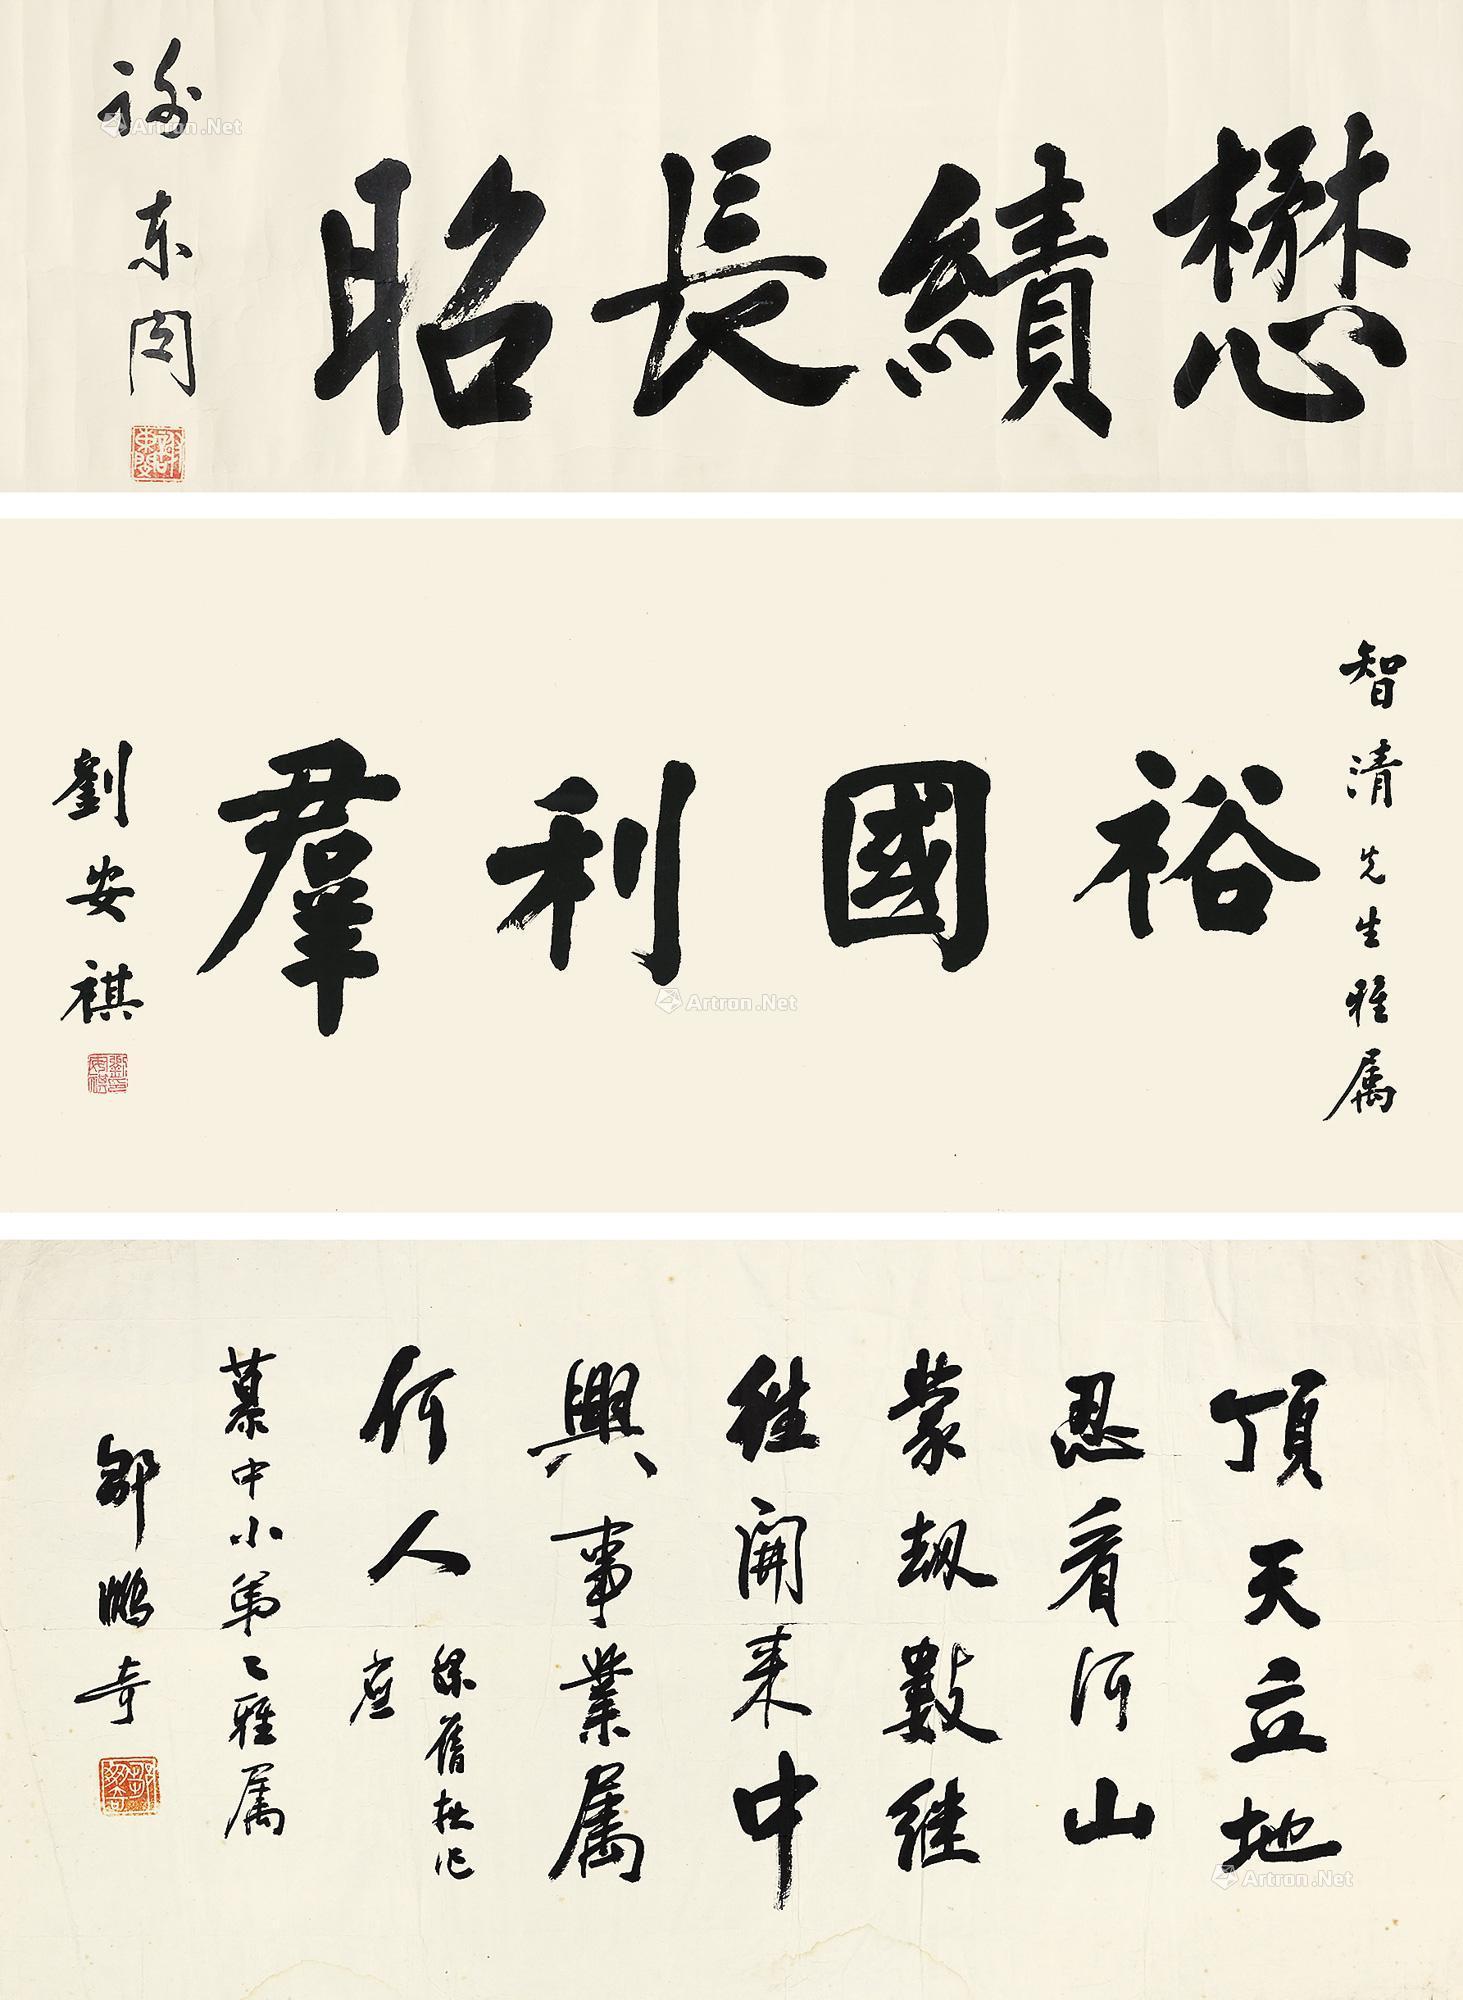 懋績長昭
谢东闵
謝東閔
Artron.Net
智清先生雅属
裕國利羣
劉安祺
Artron.Net
頂天立地
忍看河山
蒙劫數继
往開来中
興事業属
何人
舊拙作
應
慕中小弟々雅属
鄒鵬奇
Artron.Net